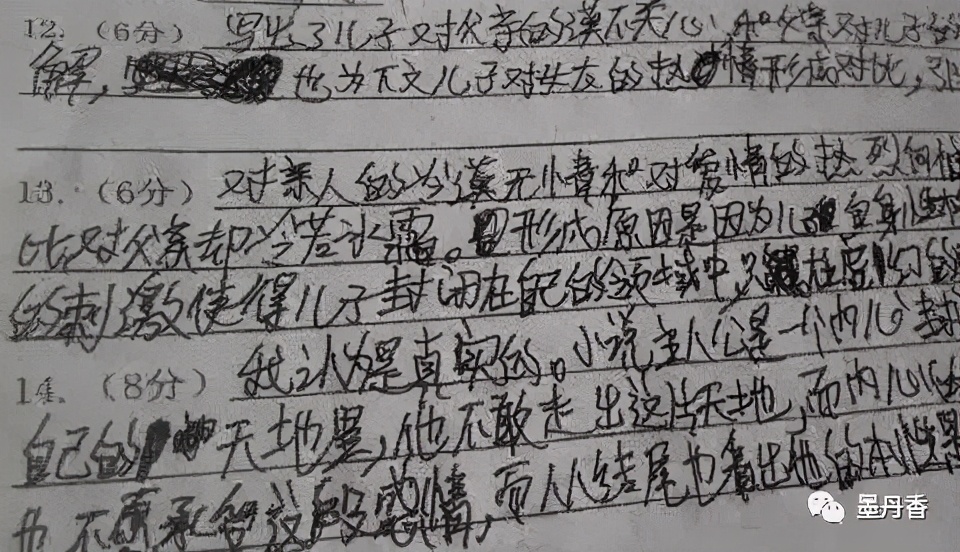 12. (6分) 写出了儿子对父亲的漠不关心,和父亲对儿子的
解, 也为下文儿子对失友的热情形成对比,
13. (6分) 对亲人的冷漠无情和对爱情的热烈向
比对父亲却冷若冰霜。形成原因是因为儿自身
的刺激使得儿子封闭在自己的领域中,只
14. (8分) 我认为是真实的。小说主人公是一个内心封
自己的天地里,他不敢走出这片天地,而内心
也不愿承答这段感情,而从结尾也看出他的本
墨丹香